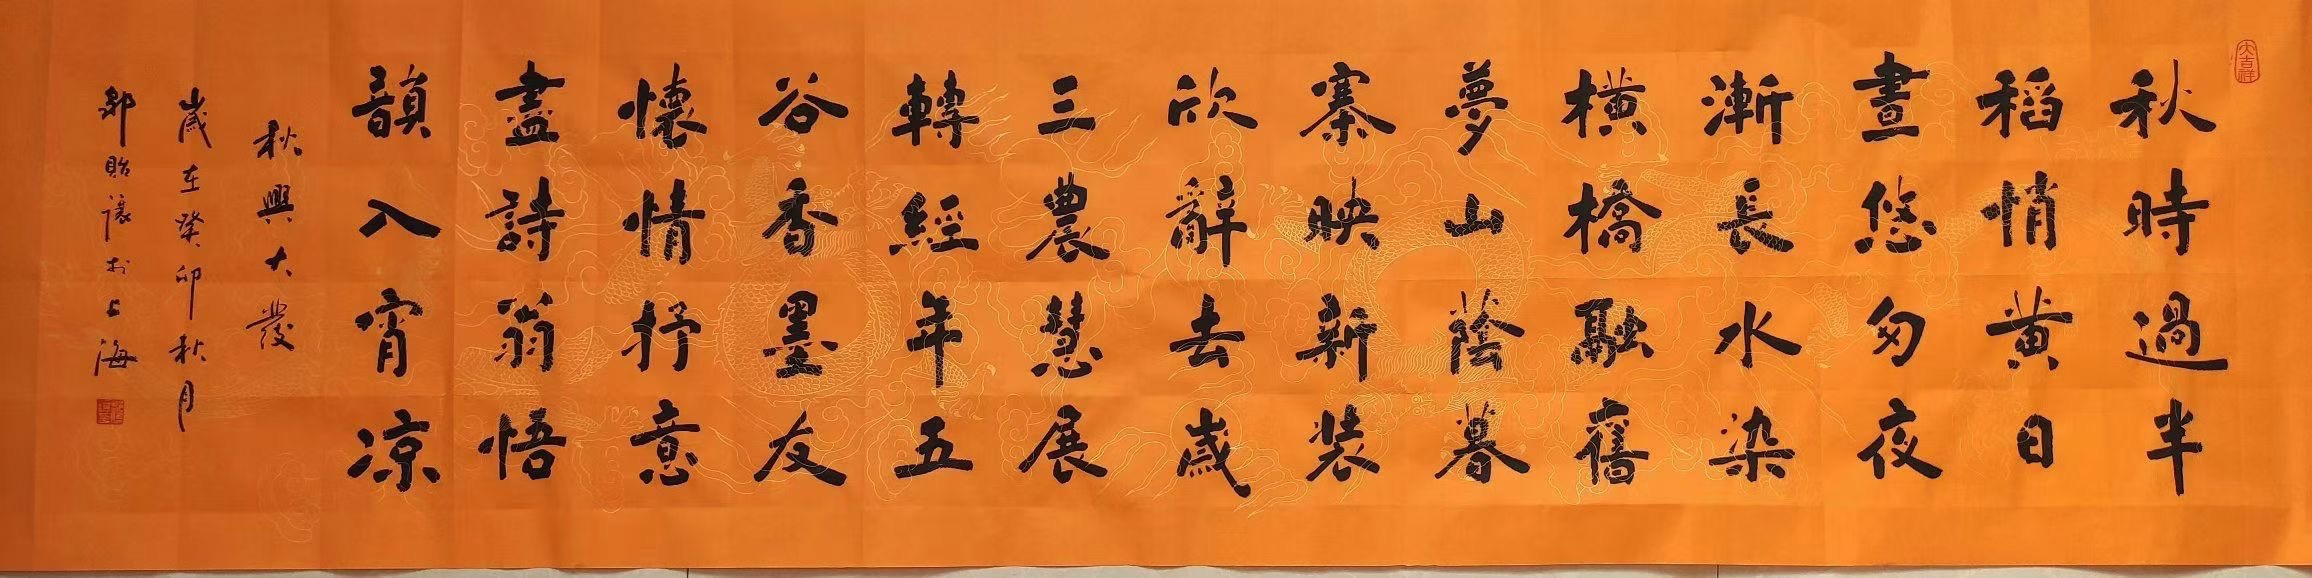 大吉祥
秋時過半
稻悄黃日
晝悠匆夜
漸長水染
橫橋融舊
夢山蔭暮
寨映新裝
欣辭去歲
三農慧展
轉經年五
谷香墨友
懷情抒意
盡詩翁悟
韻入宵凉
秋興大發
歲在癸卯秋月
鄒貽讓於上海